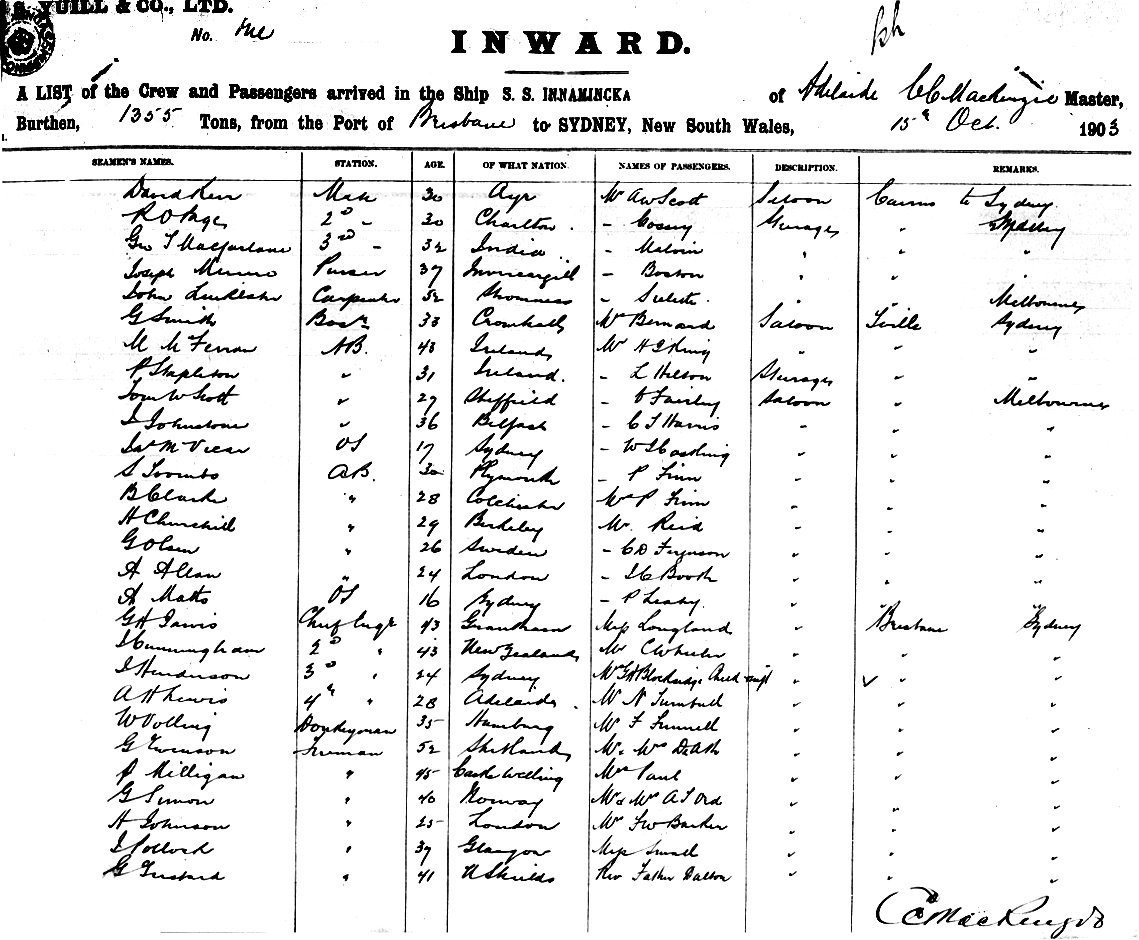 YUILL & CO., LTD.
No.
INWARD.
A LIST of the Crew and Passengers arrived in the Ship S. S. INNAMINCKA of Adelaide CC MacKenzie Master,
Burthen, 1355 Tons, from the Port of Brisbane to SYDNEY, New South Wales, 15th Oct. 1903
SEAMEN'S NAMES. STATION. AGE. OF WHAT NATION. NAMES OF PASSENGERS. DESCRIPTION. REMARKS.
David Kerr Mate 30 Ayr Mr AW Scott Saloon Cairns to Sydney
R O Page 2D " 30 Charlton - Cosby Steerage " Sydney
Geo T Macfarlane 3D " 32 India - Malvin " " "
Joseph Munro Purser 37 Invercargill - Boston " " "
John Carpenter 52 - " " Melbourne
G Smith Bosn 33 Mr Bernard Saloon Sydney
M McFerran AB. 43 Ireland Mr H G King " " "
P Stapleton " 31 Ireland. - L Hilson Steerage " "
Tom W Scott " 27 Sheffield - Fairley Saloon " Melbourne
J Johnstone " 36 Belfast - C T Harris " " "
Jas McVicar OS 17 Sydney - " " "
S Toombs AB. 30 Plymouth - P Finn " " "
B Clark " 28 Colchester Mrs P Finn " " "
H Churchill " 29 Berkeley Mr. Reid " " "
G Olsen " 26 Sweden - C D Ferguson " " "
A Allan " 24 London - J C Booth " " "
A Matts OS 16 Sydney - P Leahy. " " "
G H Jarvis Chief Engr 43 Grantham Miss Longland " Brisbane Sydney
J Cunningham 2D " 43 New Zealand Mr C Wheeler " " "
J Henderson 3D " 24 Sydney Mr G H Blockridge " " "
A H Lewis 4th " 28 Adelaide Mr N Turnbull " " "
W Volling Donkeyman 35 Hamburg Mr F Funnell " " "
G Ewenson Fireman 52 Shetland Mr & Mrs DeAth " " "
P Milligan " 45 Castle Welling Mrs Paul " " "
G Simon " 40 Norway Mr & Mrs A T Ord " " "
H Johnson " 25 London Mr F W Barker " " "
J Pollock " 39 Glasgow Miss Small " " "
G " 41 N Shields Rev Father Dalton " " "
CC MacKenzie